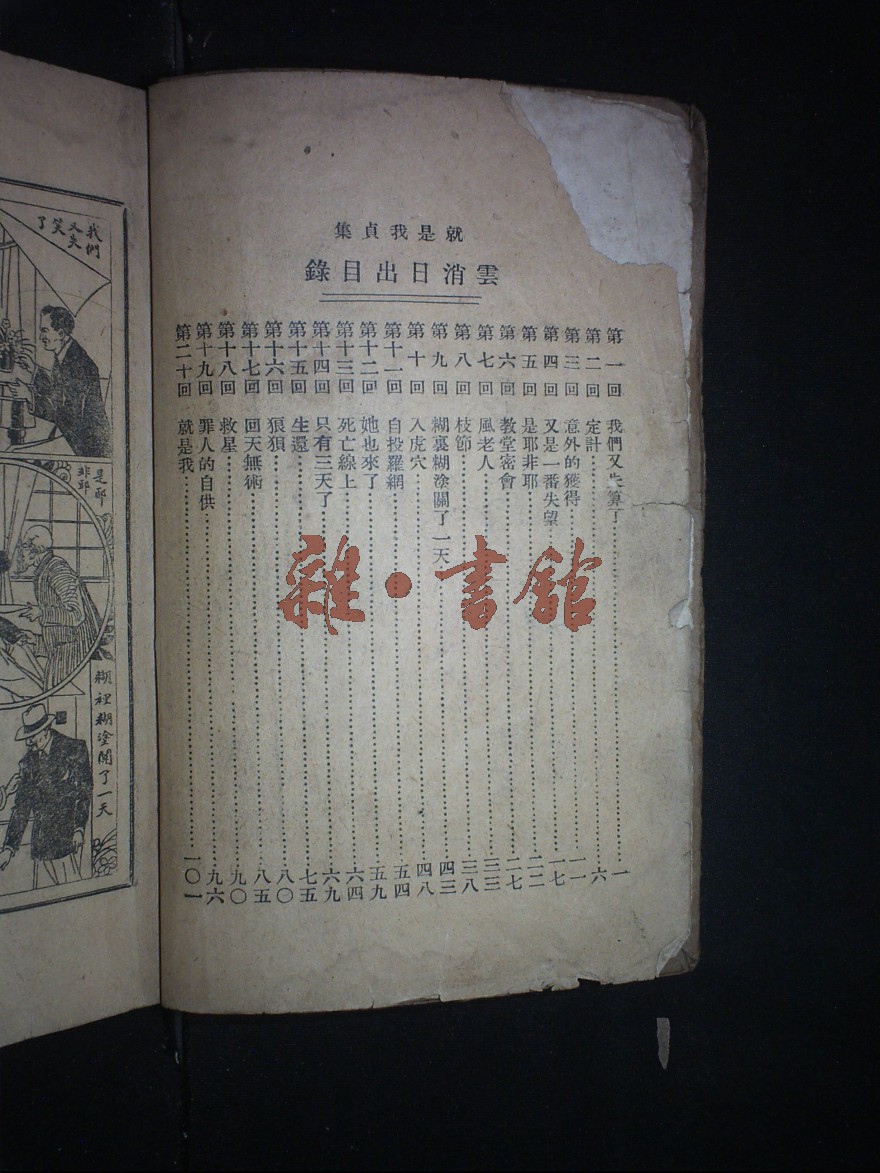 就是我貞集
雲消日出目錄
第一回 我們又失算了 一
第二回 定計 六
第三回 意外的獲得 一一
第四回 又是一番失望 一七
第五回 是耶非耶 二二
第六回 教堂密會 二七
第七回 風老人 三三
第八回 枝節 三八
第九回 糊裏糊塗關了一天 四三
第十回 入虎穴 四八
第十一回 自投羅網 五四
第十二回 她也來了 五九
第十三回 死亡線上 六四
第十四回 只有三天了 六九
第十五回 生還 七五
第十六回 狼狽 八〇
第十七回 回天無術 八五
第十八回 救星 九〇
第十九回 罪人的自供 九六
第二十回 就是我 一〇一
雜·書館
我們
又失
笑
了
是耶
非耶
糊裡糊塗關了一天